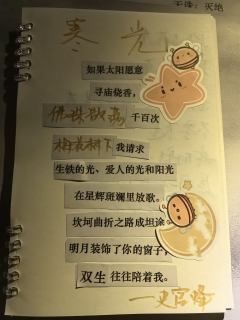 寒光
如果太阳愿意
寻庙烧香，
佛珠 千百次
梅花树下我请求
生铁的光、爱人的光和阳光
在星辉斑斓里放歌。
坎坷曲折之路成坦途。
明月装饰了你的窗子，
双生往往陪着我。